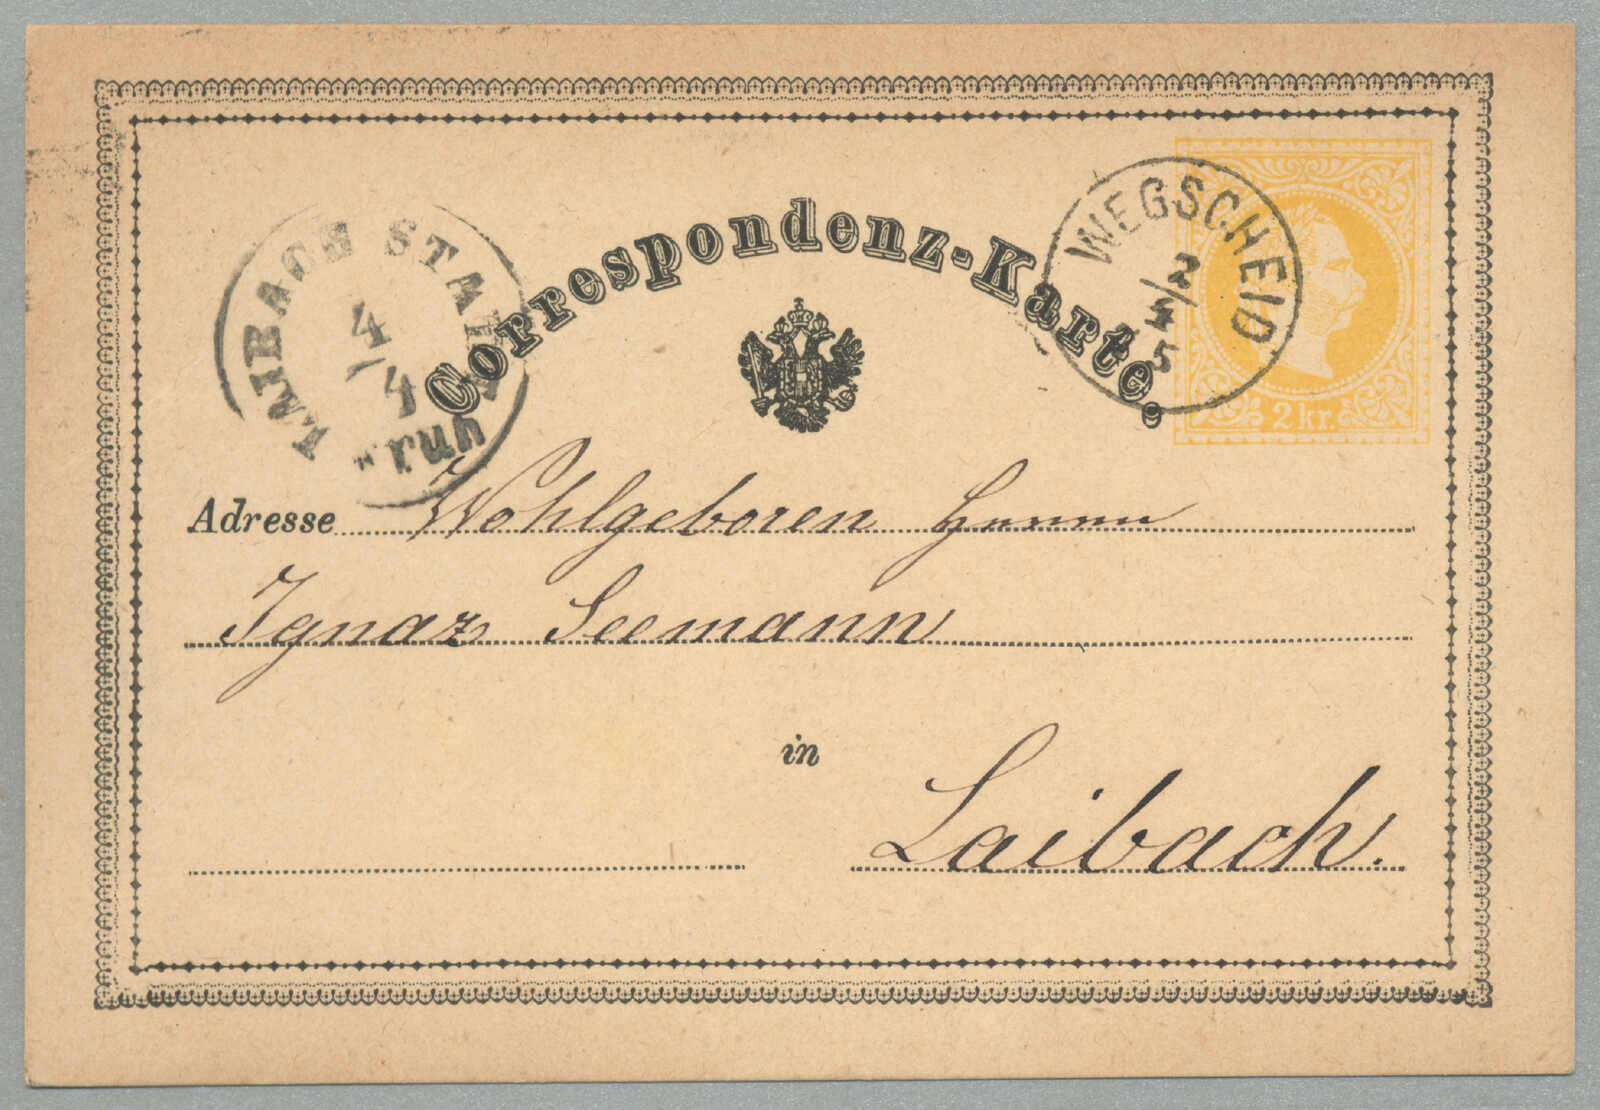 Correspondenz-Karte.
LAIBACH STADT
4/4
Früh
WEGSCHEID
2/4
5
2 kr.
Adresse Wohlgeboren Herrn
Ignaz Seemann
in
Laibach.